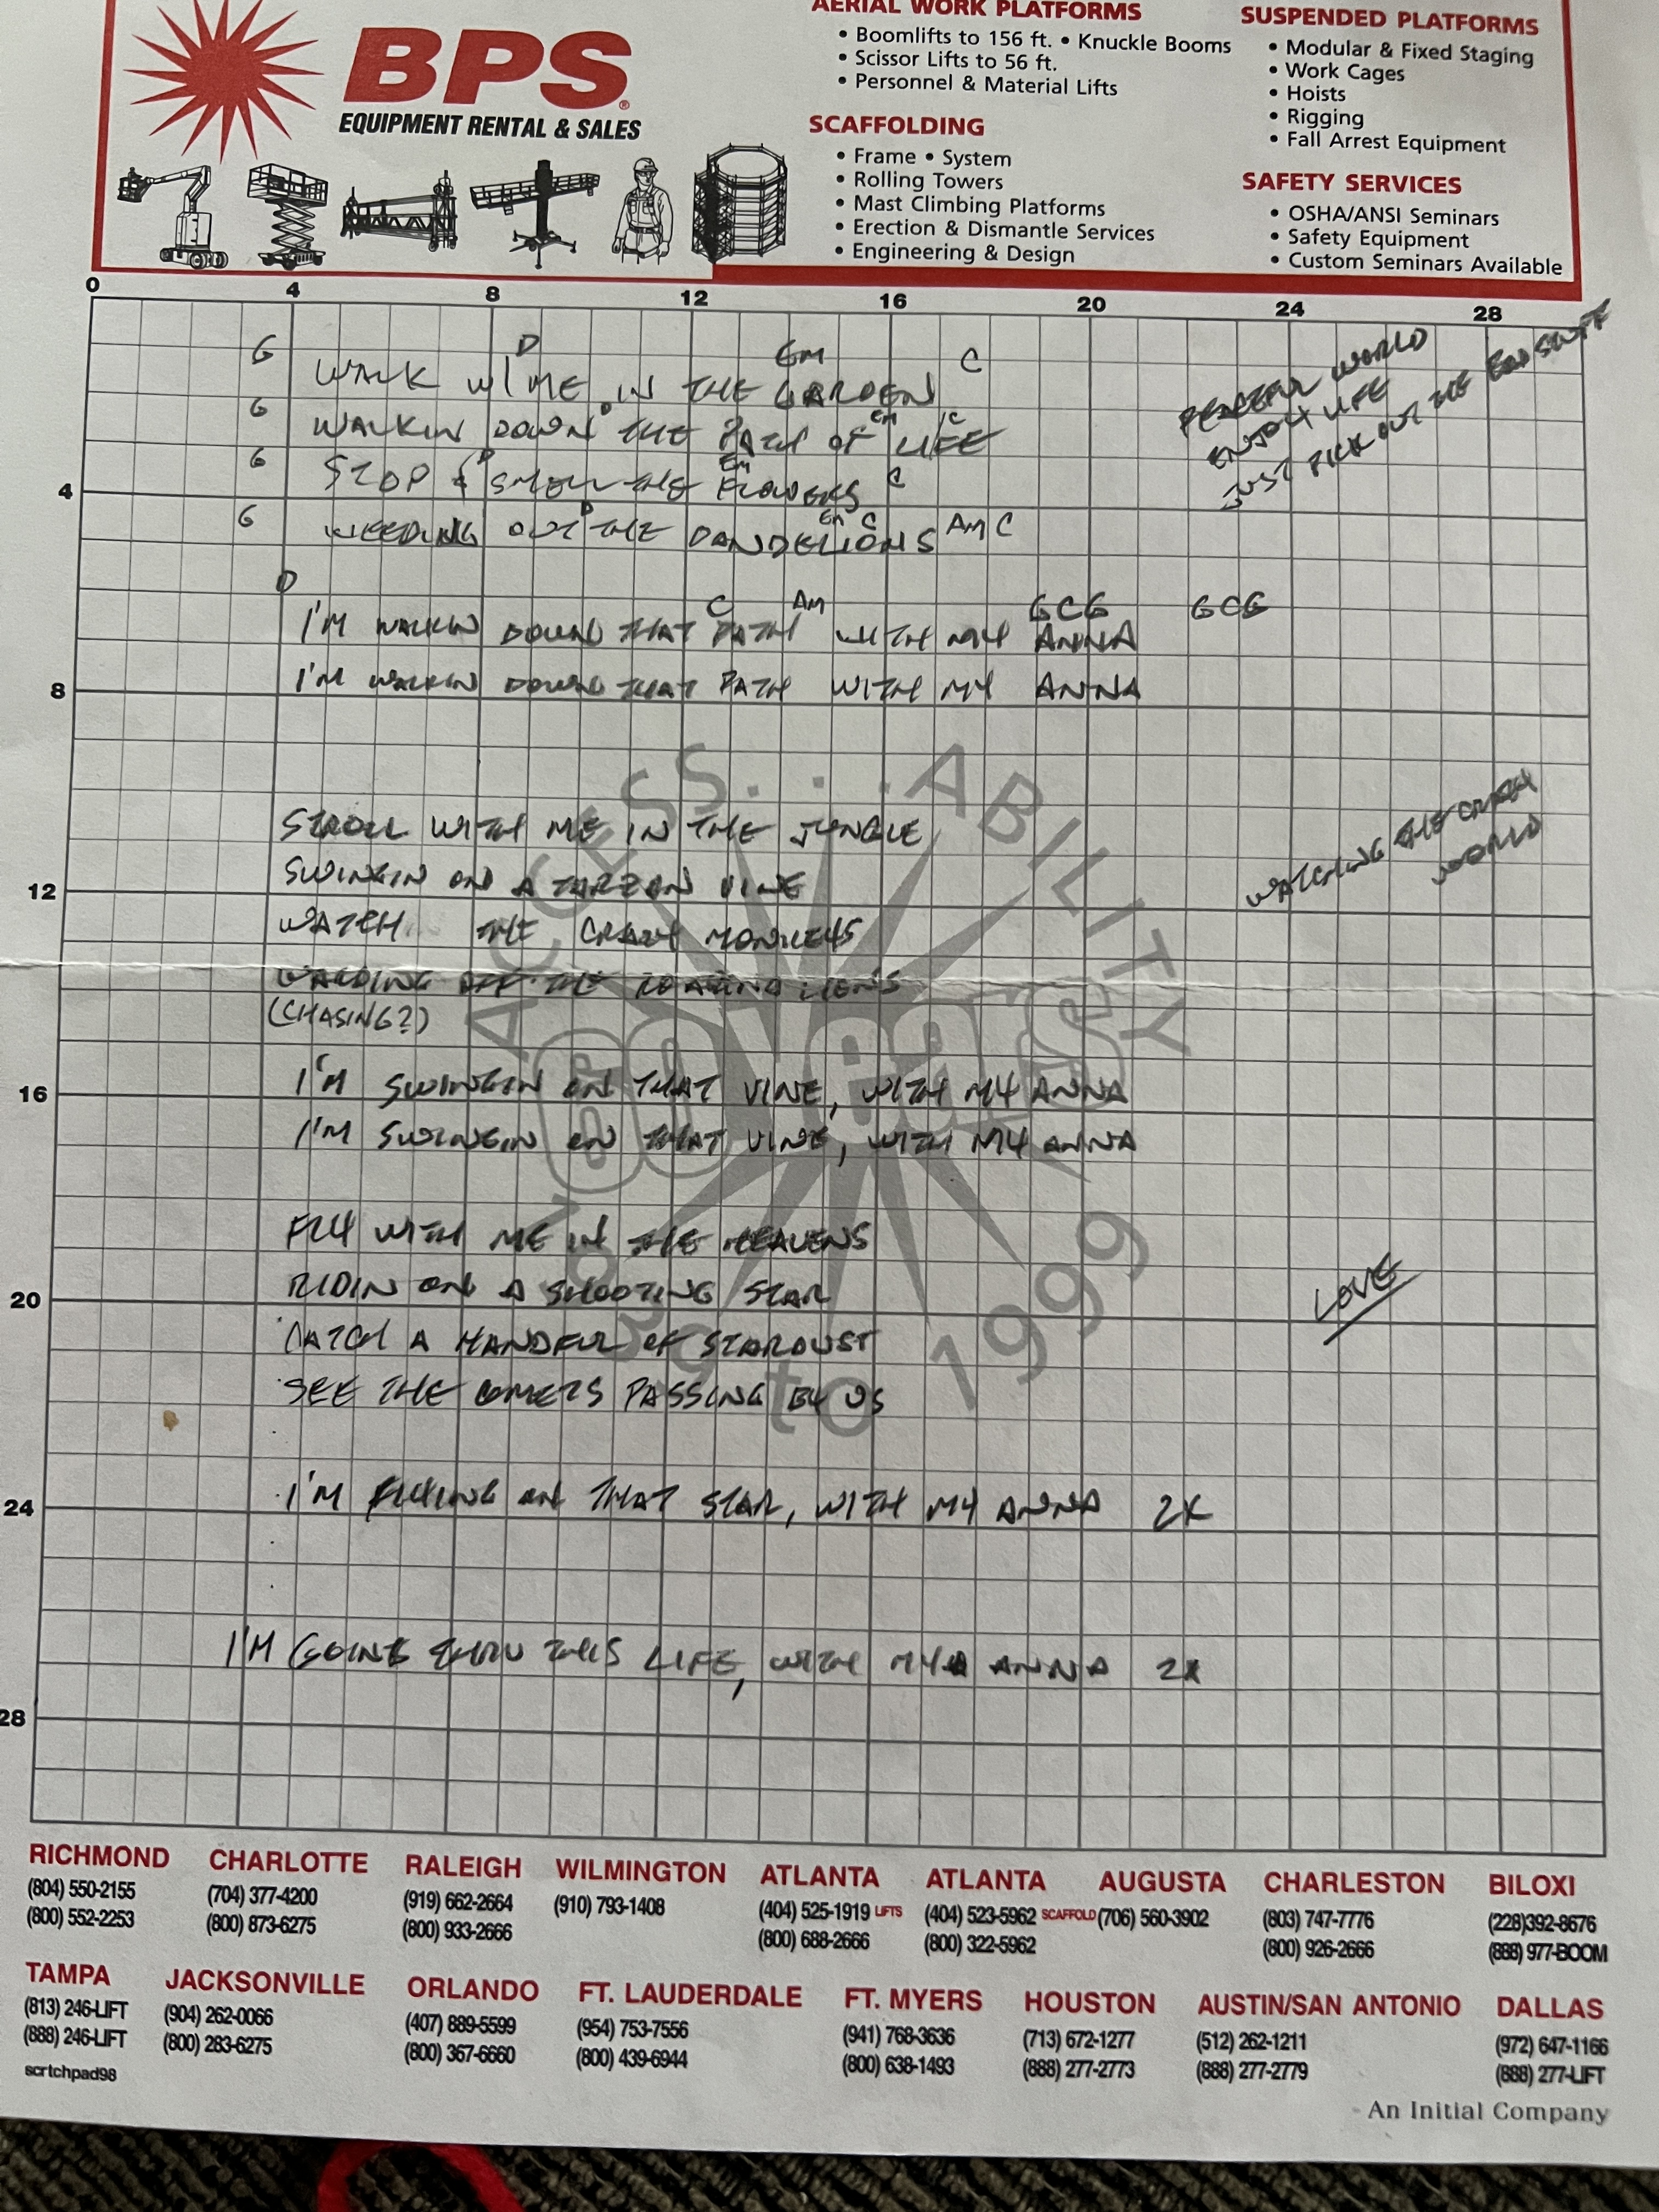 AERIAL WORK PLATFORMS
• Boomlifts to 156 ft. • Knuckle Booms
• Scissor Lifts to 56 ft.
• Personnel & Material Lifts
SCAFFOLDING
• Frame • System
• Rolling Towers
• Mast Climbing Platforms
• Erection & Dismantle Services
• Engineering & Design
SUSPENDED PLATFORMS
• Modular & Fixed Staging
• Work Cages
• Hoists
• Rigging
• Fall Arrest Equipment
SAFETY SERVICES
• OSHA/ANSI Seminars
• Safety Equipment
• Custom Seminars Available
BPS®
EQUIPMENT RENTAL & SALES
0 4 8 12 16 20 24 28
G D Em C
WALK W/ ME IN THE GARDEN
G D Em C
WALKIN DOWN THE PATH OF LIFE
G D Em C
STOP & SMELL THE FLOWERS
G D Em C Am C
WEEDING OUT THE DANDELIONS
PEACEFUL WORLD
ENJOY LIFE
JUST PICK OUT THE BAD STUFF
4
D C Am GCG GCG
I'M WALKIN DOWN THAT PATH WITH MY ANNA
I'M WALKIN DOWN THAT PATH WITH MY ANNA
8
STROLL WITH ME IN THE JUNGLE
SWINGIN ON A TARZAN VINE
WATCH THE CRAZY MONKEYS
WARDING OFF THE ROARING LIONS
(CHASING?)
WATCHING THE CRAZY
WORLD
12
I'M SWINGIN ON THAT VINE, WITH MY ANNA
I'M SWINGIN ON THAT VINE, WITH MY ANNA
16
FLY WITH ME IN THE HEAVENS
RIDIN ON A SHOOTING STAR
CATCH A HANDFUL OF STARDUST
SEE THE COMETS PASSING BY US
LOVE
20
I'M FLYING ON THAT STAR, WITH MY ANNA 2X
24
I'M GOING THRU THIS LIFE, WITH MY ANNA 2X
28
ACCESS...ABILITY
60 years
to 1999
RICHMOND
(804) 550-2155
(800) 552-2253
CHARLOTTE
(704) 377-4200
(800) 873-6275
RALEIGH
(919) 662-2664
(800) 933-2666
WILMINGTON
(910) 793-1408
ATLANTA
(404) 525-1919 LIFTS
(800) 688-2666
ATLANTA
(404) 523-5962 SCAFFOLD
(800) 322-5962
AUGUSTA
(706) 560-3902
CHARLESTON
(803) 747-7776
(800) 926-2666
BILOXI
(228)392-8676
(888) 977-BOOM
TAMPA
(813) 246-LIFT
(888) 246-LIFT
JACKSONVILLE
(904) 262-0066
(800) 283-6275
ORLANDO
(407) 889-5599
(800) 367-6660
FT. LAUDERDALE
(954) 753-7556
(800) 439-6944
FT. MYERS
(941) 768-3636
(800) 638-1493
HOUSTON
(713) 672-1277
(888) 277-2773
AUSTIN/SAN ANTONIO
(512) 262-1211
(888) 277-2779
DALLAS
(972) 647-1166
(888) 277-LIFT
scrtchpad98
An Initial Company